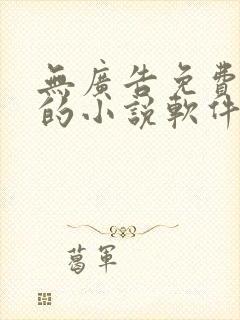 無廣告免費
的小說軟件
葛軍